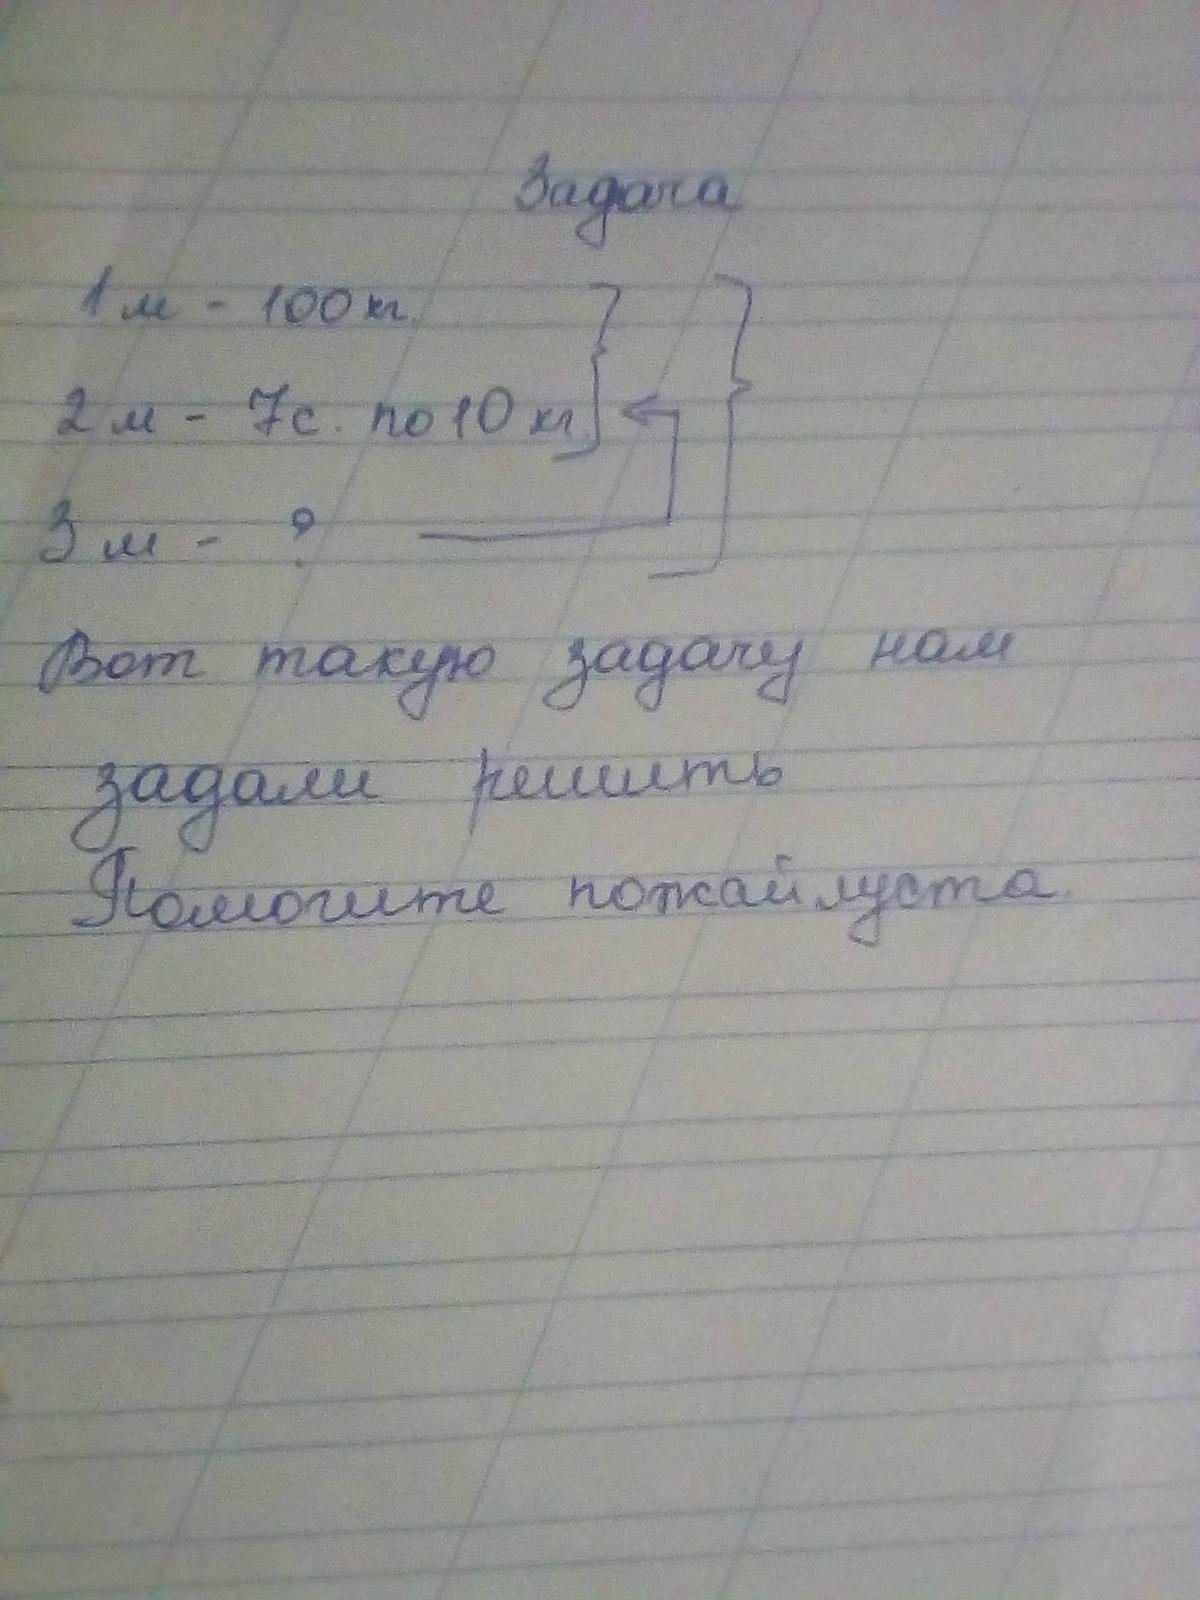 Задача
1 м - 100 кг.
2 м - 7с. по 10 кг
3 м - ?
Вот такую задачу нам
задали решить
Помогите пожайлуста.